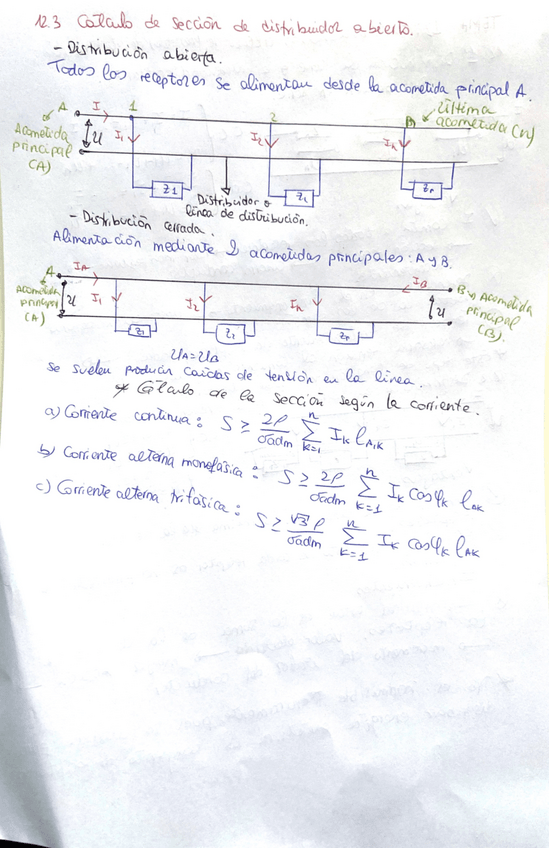 12.3 Cálculo de sección de distribuidor abierto.
- Distribución abierta.
Todos los receptores se alimentan desde la acometida principal A.
A I 1 2 B última acometida (n)
Acometida principal (A) U I1 I2 In
Z1 Z2 Zn
Distribuidor o línea de distribución.
- Distribución cerrada.
Alimentación mediante 2 acometidas principales: A y B.
A IA IB B Acometida principal (B).
Acometida principal (A) U I1 I2 In U
Z1 Z2 Zn
UA=UB
se suelen producir caídas de tensión en la línea.
* Cálculo de la sección según la corriente.
a) Corriente continua: S ≥ 2ρ/σadm ∑ k=1 n Ik lA,k
b) Corriente alterna monofásica: S ≥ 2ρ/σadm ∑ k=1 n Ik cosφk lAK
c) Corriente alterna trifásica: S ≥ √3 ρ/σadm ∑ k=1 n Ik cosφk lAK